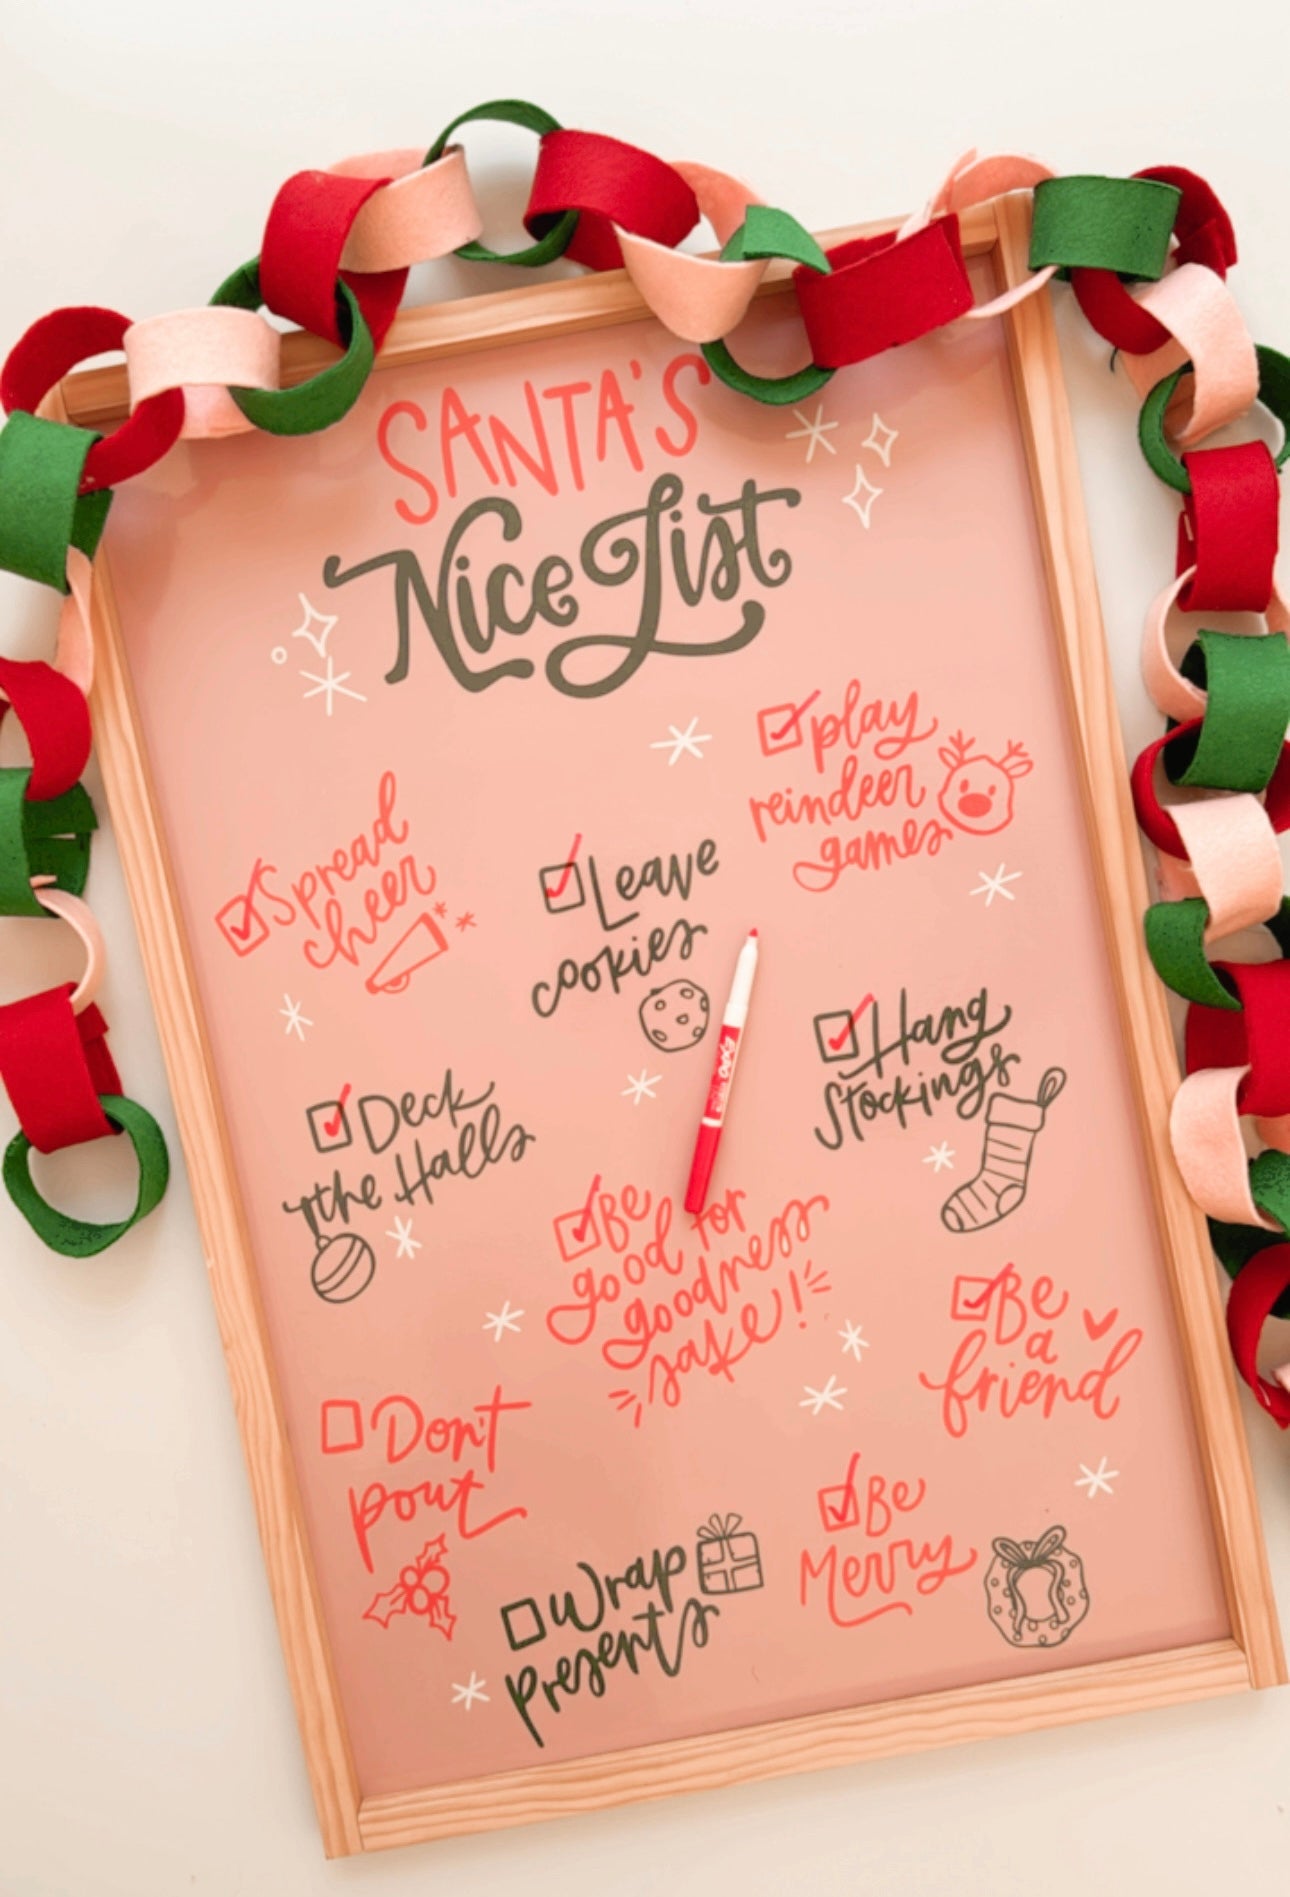 SANTA'S
Nice List
play
reindeer
games
Spread
cheer
Leave
cookies
Hang
Stockings
Deck
the Halls
Be
good for
goodness
sake!
Be
a
friend
Don't
pout
Be
Merry
Wrap
presents
EXPO